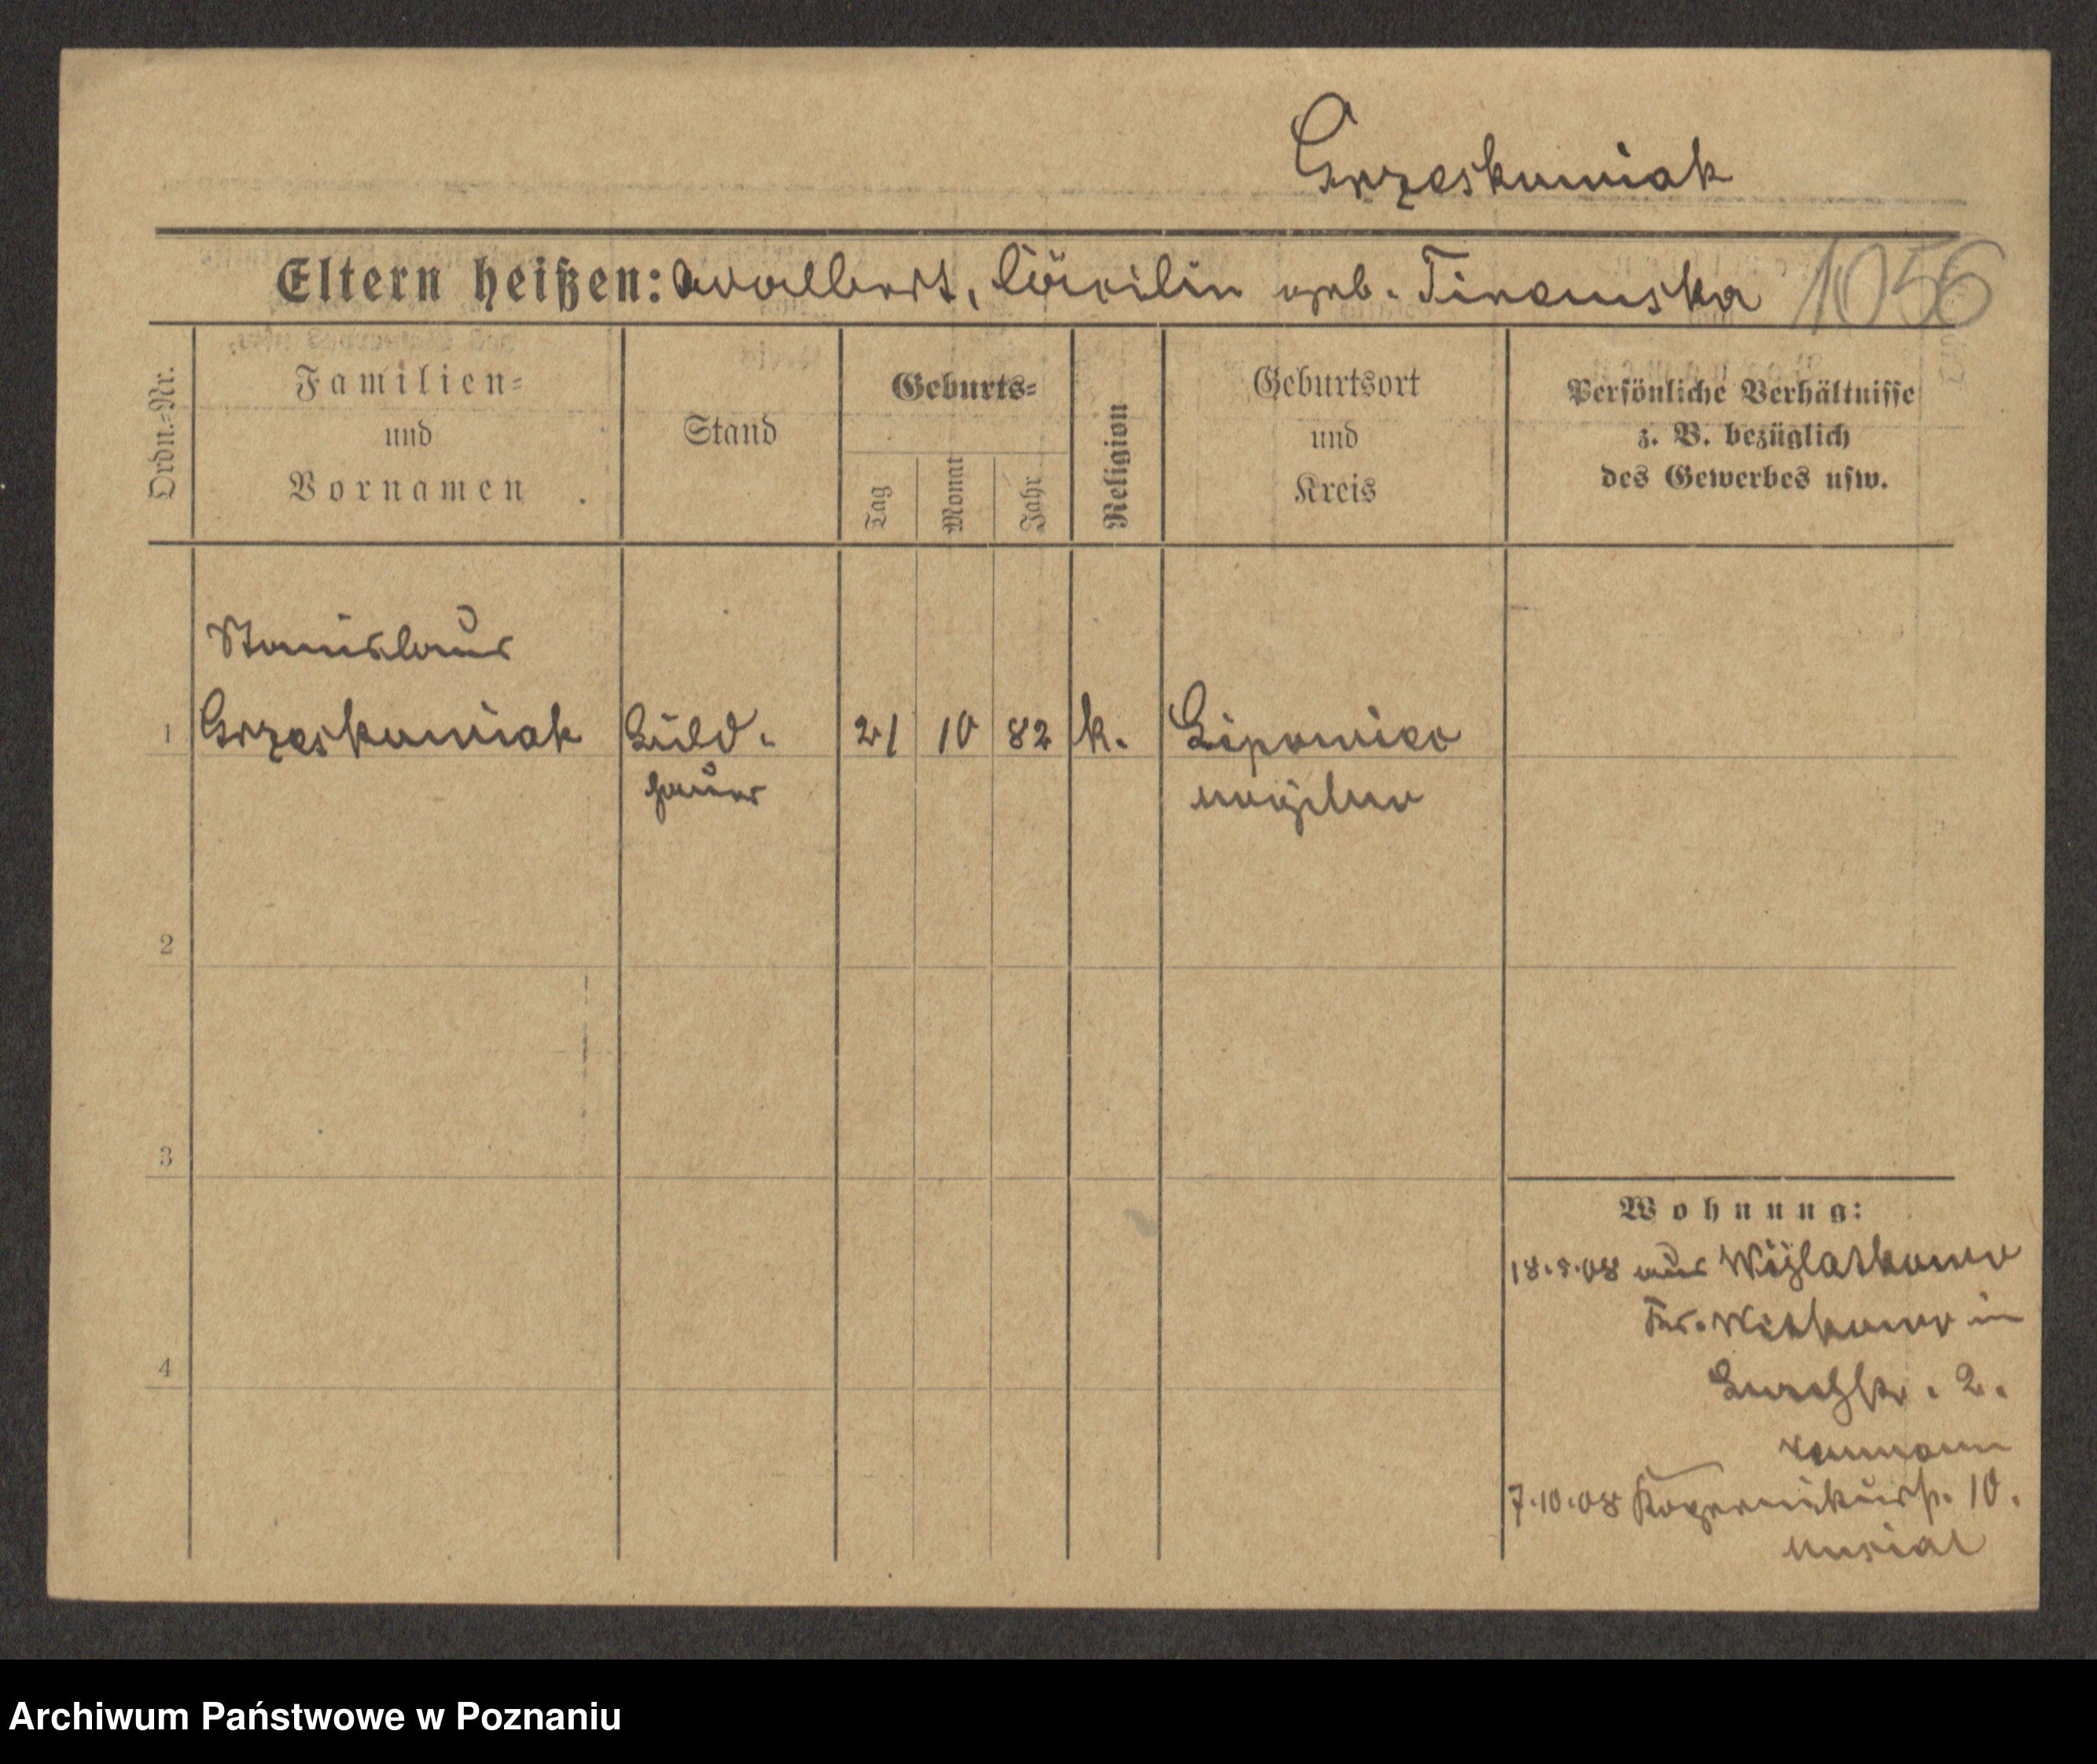 Grzeskowiak
Eltern heißen: Adalbert, Cäcilie geb. 1056
Ordn.-Nr.
Familien-
und
Vornamen
Stand
Geburts-
Tag
Monat
Jahr
Religion
Geburtsort
und
Kreis
Persönliche Verhältnisse
z. B. bezüglich
des Gewerbes usw.
Stanislaus
1 Grzeskowiak Bild- 21 10 82 k. Lipowiec
hauer Mogilno
2
3
4
Wohnung:
18.5.08 aus
Kr. Witkowo in
2.
7.10.08 Kopernikusstr. 10.
Musial
Archiwum Państwowe w Poznaniu